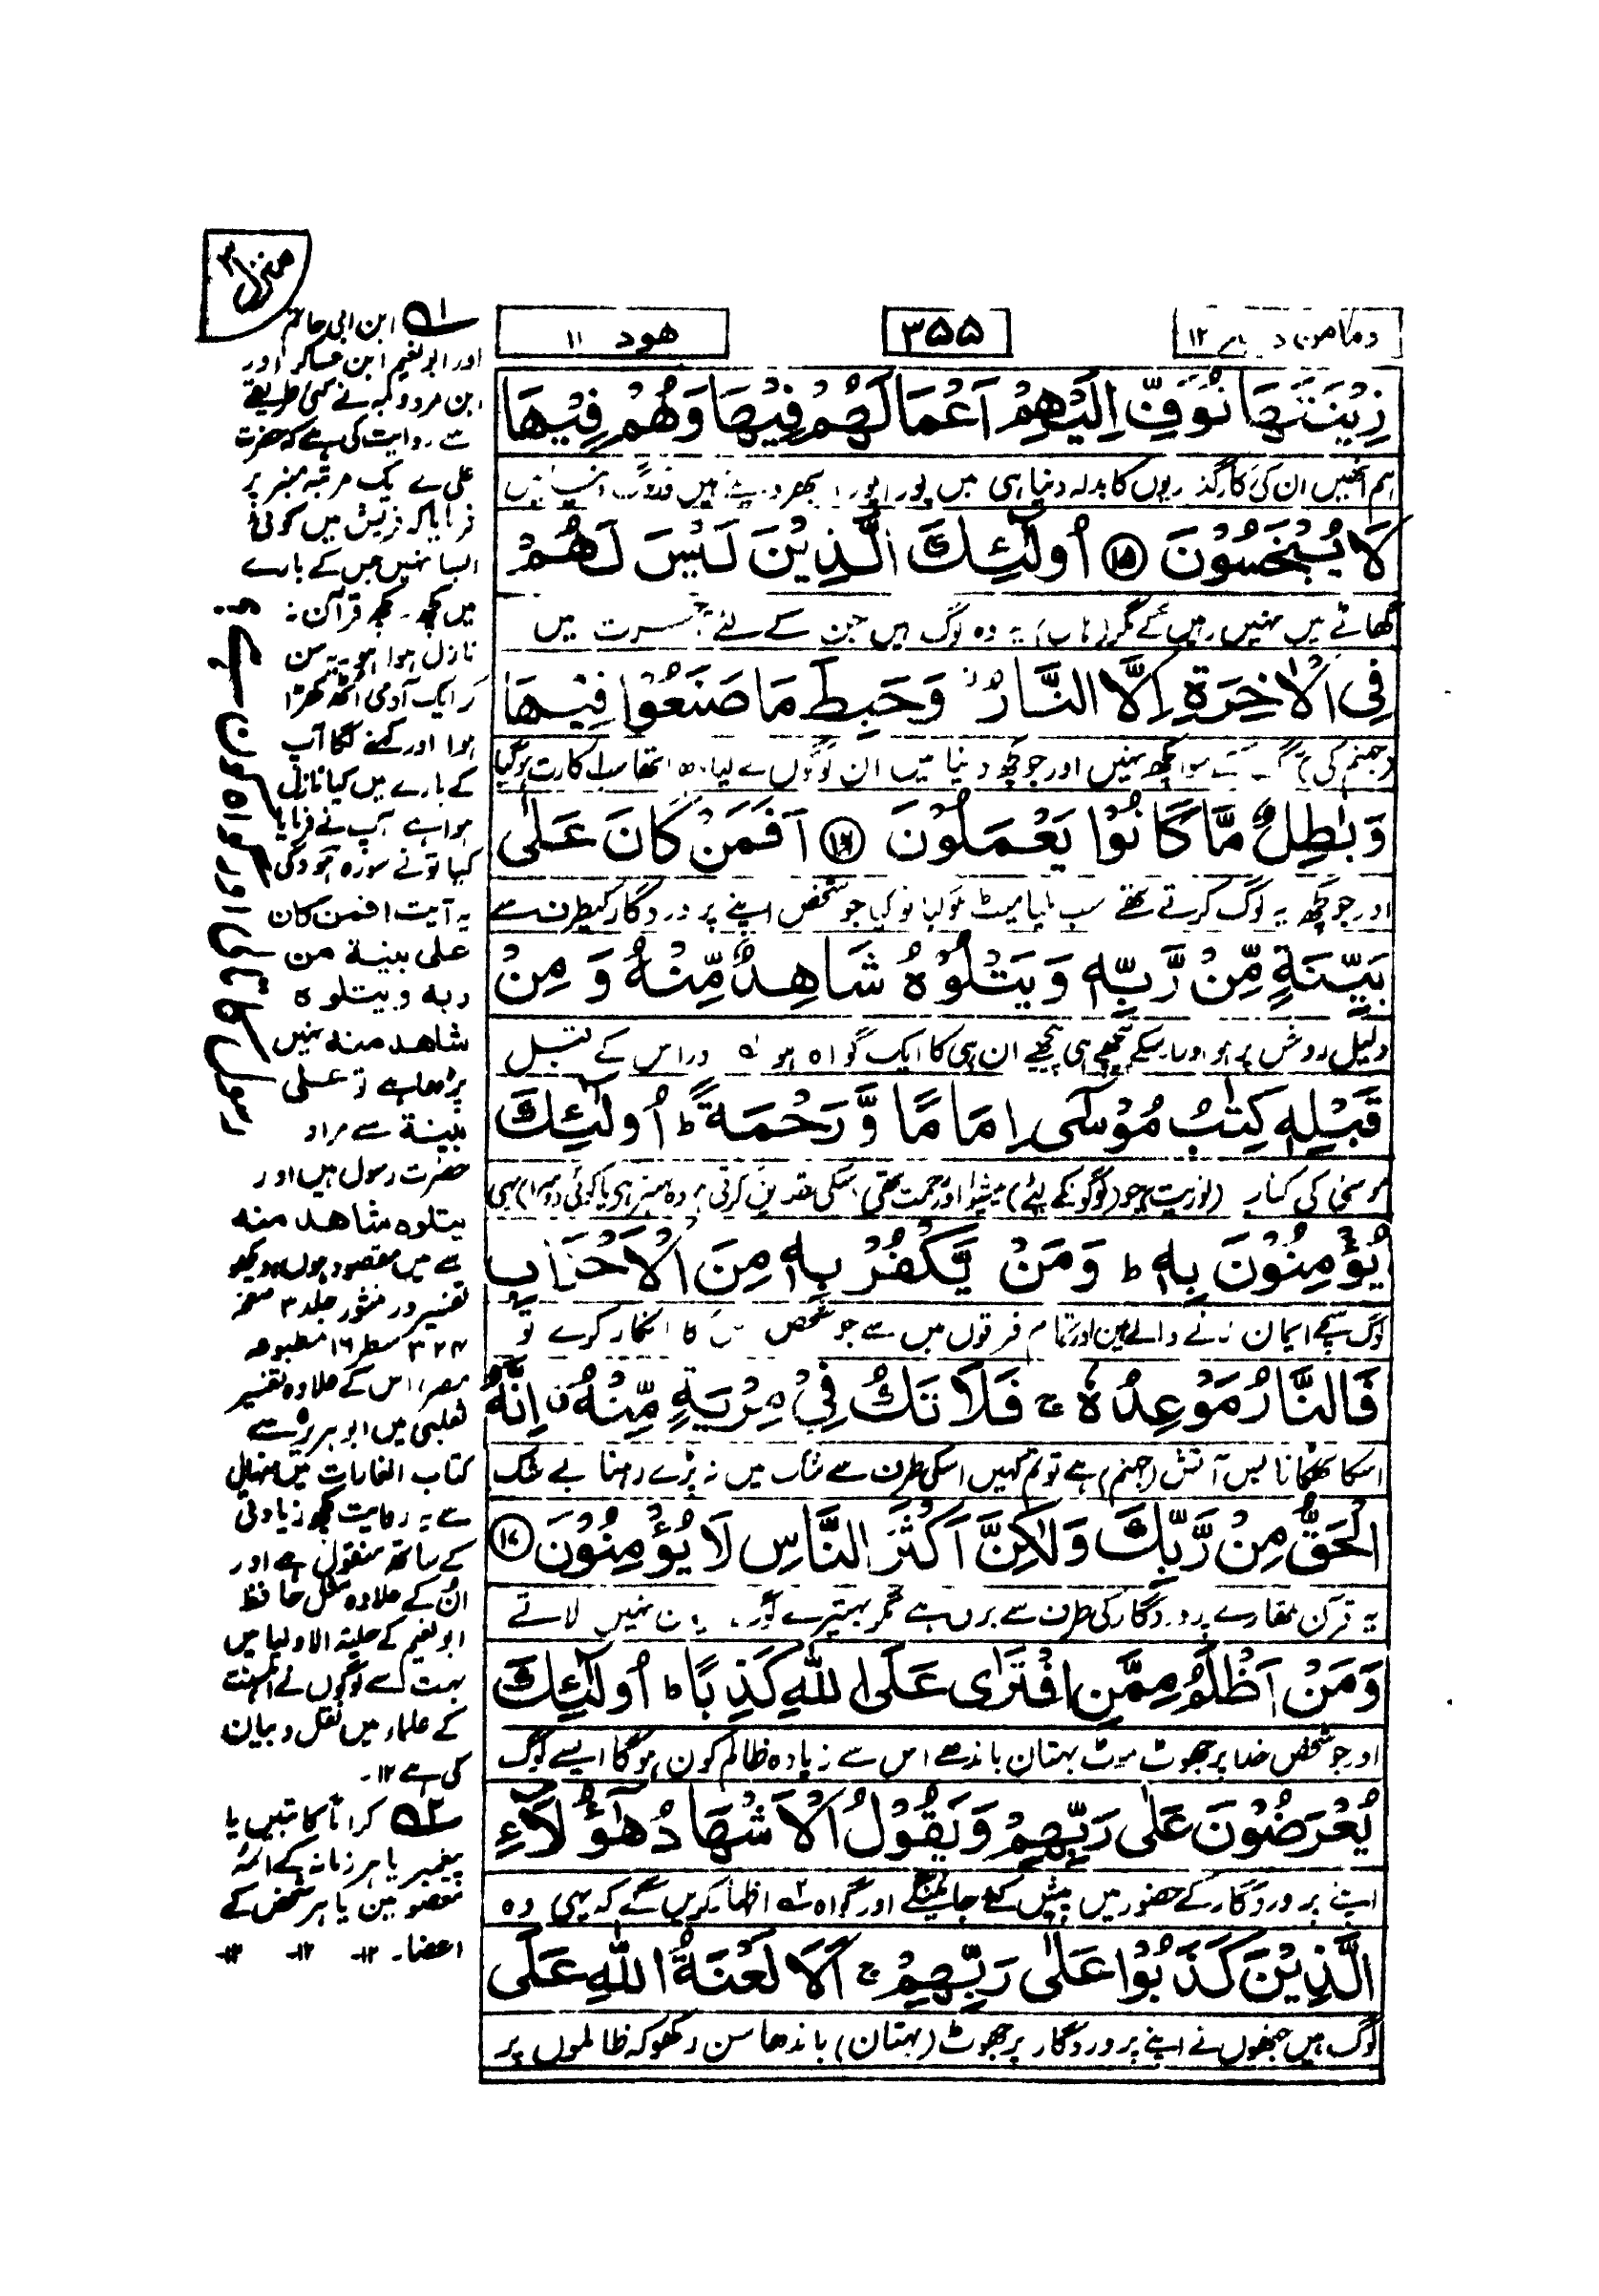 ومامن دابۃ ١٢
٣٥٥
هود ١١
زِيْنَتَهَا نُوَفِّ اِلَيْهِمْ اَعْمَالَهُمْ فِيْهَا وَهُمْ فِيْهَا
ہم انھیں ان کی کارگذاریوں کا بدلہ دنیا ہی میں پورا پورا بھر دیتے ہیں
لَا يُبْخَسُوْنَ ١٥ اُولٰٓئِكَ الَّذِيْنَ لَيْسَ لَهُمْ
گھاٹے میں نہیں رہیں گے مگر (ہاں) یہ وہ لوگ ہیں جن کے لئے آخرت میں
فِي الْاٰخِرَةِ اِلَّا النَّارُ وَحَبِطَ مَا صَنَعُوْا فِيْهَا
(جہنم کی) آگ کے سوا کچھ نہیں اور جو کچھ دنیا میں ان لوگوں نے کیا تھا سب اکارت ہو گیا
وَبٰطِلٌ مَّا كَانُوْا يَعْمَلُوْنَ ١٦ اَفَمَنْ كَانَ عَلٰى
اور جو کچھ یہ لوگ کرتے تھے سب ملیا میٹ ہو گیا تو کیا جو شخص اپنے پروردگار کیطرف سے
بَيِّنَةٍ مِّنْ رَّبِّهٖ وَيَتْلُوْهُ شَاهِدٌ مِّنْهُ وَ مِنْ
دلیل روشن پر ہو اور اسکے پیچھے ہی پیچھے ان ہی کا ایک گواہ ہو ١ے اور اس کے قبل
قَبْلِهٖ كِتٰبُ مُوْسٰٓى اِمَامًا وَّرَحْمَةً ؕ اُولٰٓئِكَ
موسٰی کی کتاب (توریت) جو (لوگونکے لئے) پیشوا اور رحمت تھی اسکی تصدیق کرتی ہو وہ بہتر ہے یا کوئی (دوسرا) یہی
يُؤْمِنُوْنَ بِهٖ ؕ وَمَنْ يَّكْفُرْ بِهٖ مِنَ الْاَحْزَابِ
لوگ سچے ایمان لانے والے ہیں اور تمام فرقوں میں سے جو شخص اس کا انکار کرے تو
فَالنَّارُ مَوْعِدُهٗ ۚ فَلَا تَكُ فِيْ مِرْيَةٍ مِّنْهُ ۗ اِنَّهُ
اسکا ٹھکانا بس آتش (جہنم) ہے تو تم کہیں اسکی طرف سے شک میں نہ پڑے رہنا بے شک
الْحَقُّ مِنْ رَّبِّكَ وَلٰكِنَّ اَكْثَرَ النَّاسِ لَا يُؤْمِنُوْنَ ١٧
یہ قرآن تمھارے پروردگار کی طرف سے برحق ہے مگر بہتیرے لوگ ایمان نہیں لاتے
وَمَنْ اَظْلَمُ مِمَّنِ افْتَرٰى عَلَى اللّٰهِ كَذِبًا ؕ اُولٰٓئِكَ
اور جو شخص خدا پر جھوٹ موٹ بہتان باندھے اس سے زیادہ ظالم کون ہو گا ایسے لوگ
يُعْرَضُوْنَ عَلٰى رَبِّهِمْ وَيَقُوْلُ الْاَشْهَادُ هٰٓؤُلَآءِ
اپنے پروردگار کے حضور میں پیش کئے جائینگے اور گواہ ٢ے اظہار کریں گے کہ یہی وہ
الَّذِيْنَ كَذَبُوْا عَلٰى رَبِّهِمْ ۚ اَلَا لَعْنَةُ اللّٰهِ عَلَى
لوگ ہیں جنھوں نے اپنے پروردگار پر جھوٹ (بہتان) باندھا سن رکھو کہ ظالموں پر
منزل ٣
١ے ابن ابی حاتم
اور ابونعیم ابن عساکر اور
ابن مردویہ نے کئی طریقے
سے روایت کی ہے کہ حضرت
علی نے ایک مرتبہ منبر پر
فرمایا کہ قریش میں کوئی
ایسا نہیں جس کے بارے
میں کچھ نہ کچھ قرآن نہ
نازل ہوا ہو یہ سن
کر ایک آدمی اٹھ کھڑا
ہوا اور کہنے لگا آپ
کے بارے میں کیا نازل
ہوا ہے آپ نے فرمایا
کیا تونے سورہ ہود کی
یہ آیت افمن کان
علی بینة من
ربه ویتلوہ
شاهد منه نہیں
پڑھا ہے تو علی
بینة سے مراد
حضرت رسول ہیں اور
یتلوہ شاهد منه
سے میں مقصود ہوں، دیکھو
تفسیر در منثور جلد ٣ صفحہ
٣٢٤ سطر ١٦ مطبوعہ
مصر، اس کے علاوہ تفسیر
ثعلبی میں ابوہریرہ سے
کتاب الغارات میں منہال
سے یہ روایت کچھ زیادتی
کے ساتھ منقول ہے اور
ان کے علاوہ مثل حافظ
ابونعیم کے حلیۃ الاولیا میں
بہت سے لوگوں نے اہلسنت
کے علماء میں نقل و بیان
کی ہے ١٢۔
٢ے کراماً کاتبین یا
پیغمبر یا ہر زمانہ کے ائمہ
معصومین یا ہر شخص کے
اعضا۔ ١٢۔ ١٢۔ ١٢۔
رسول کا ثانی اور گواہ کون ہے